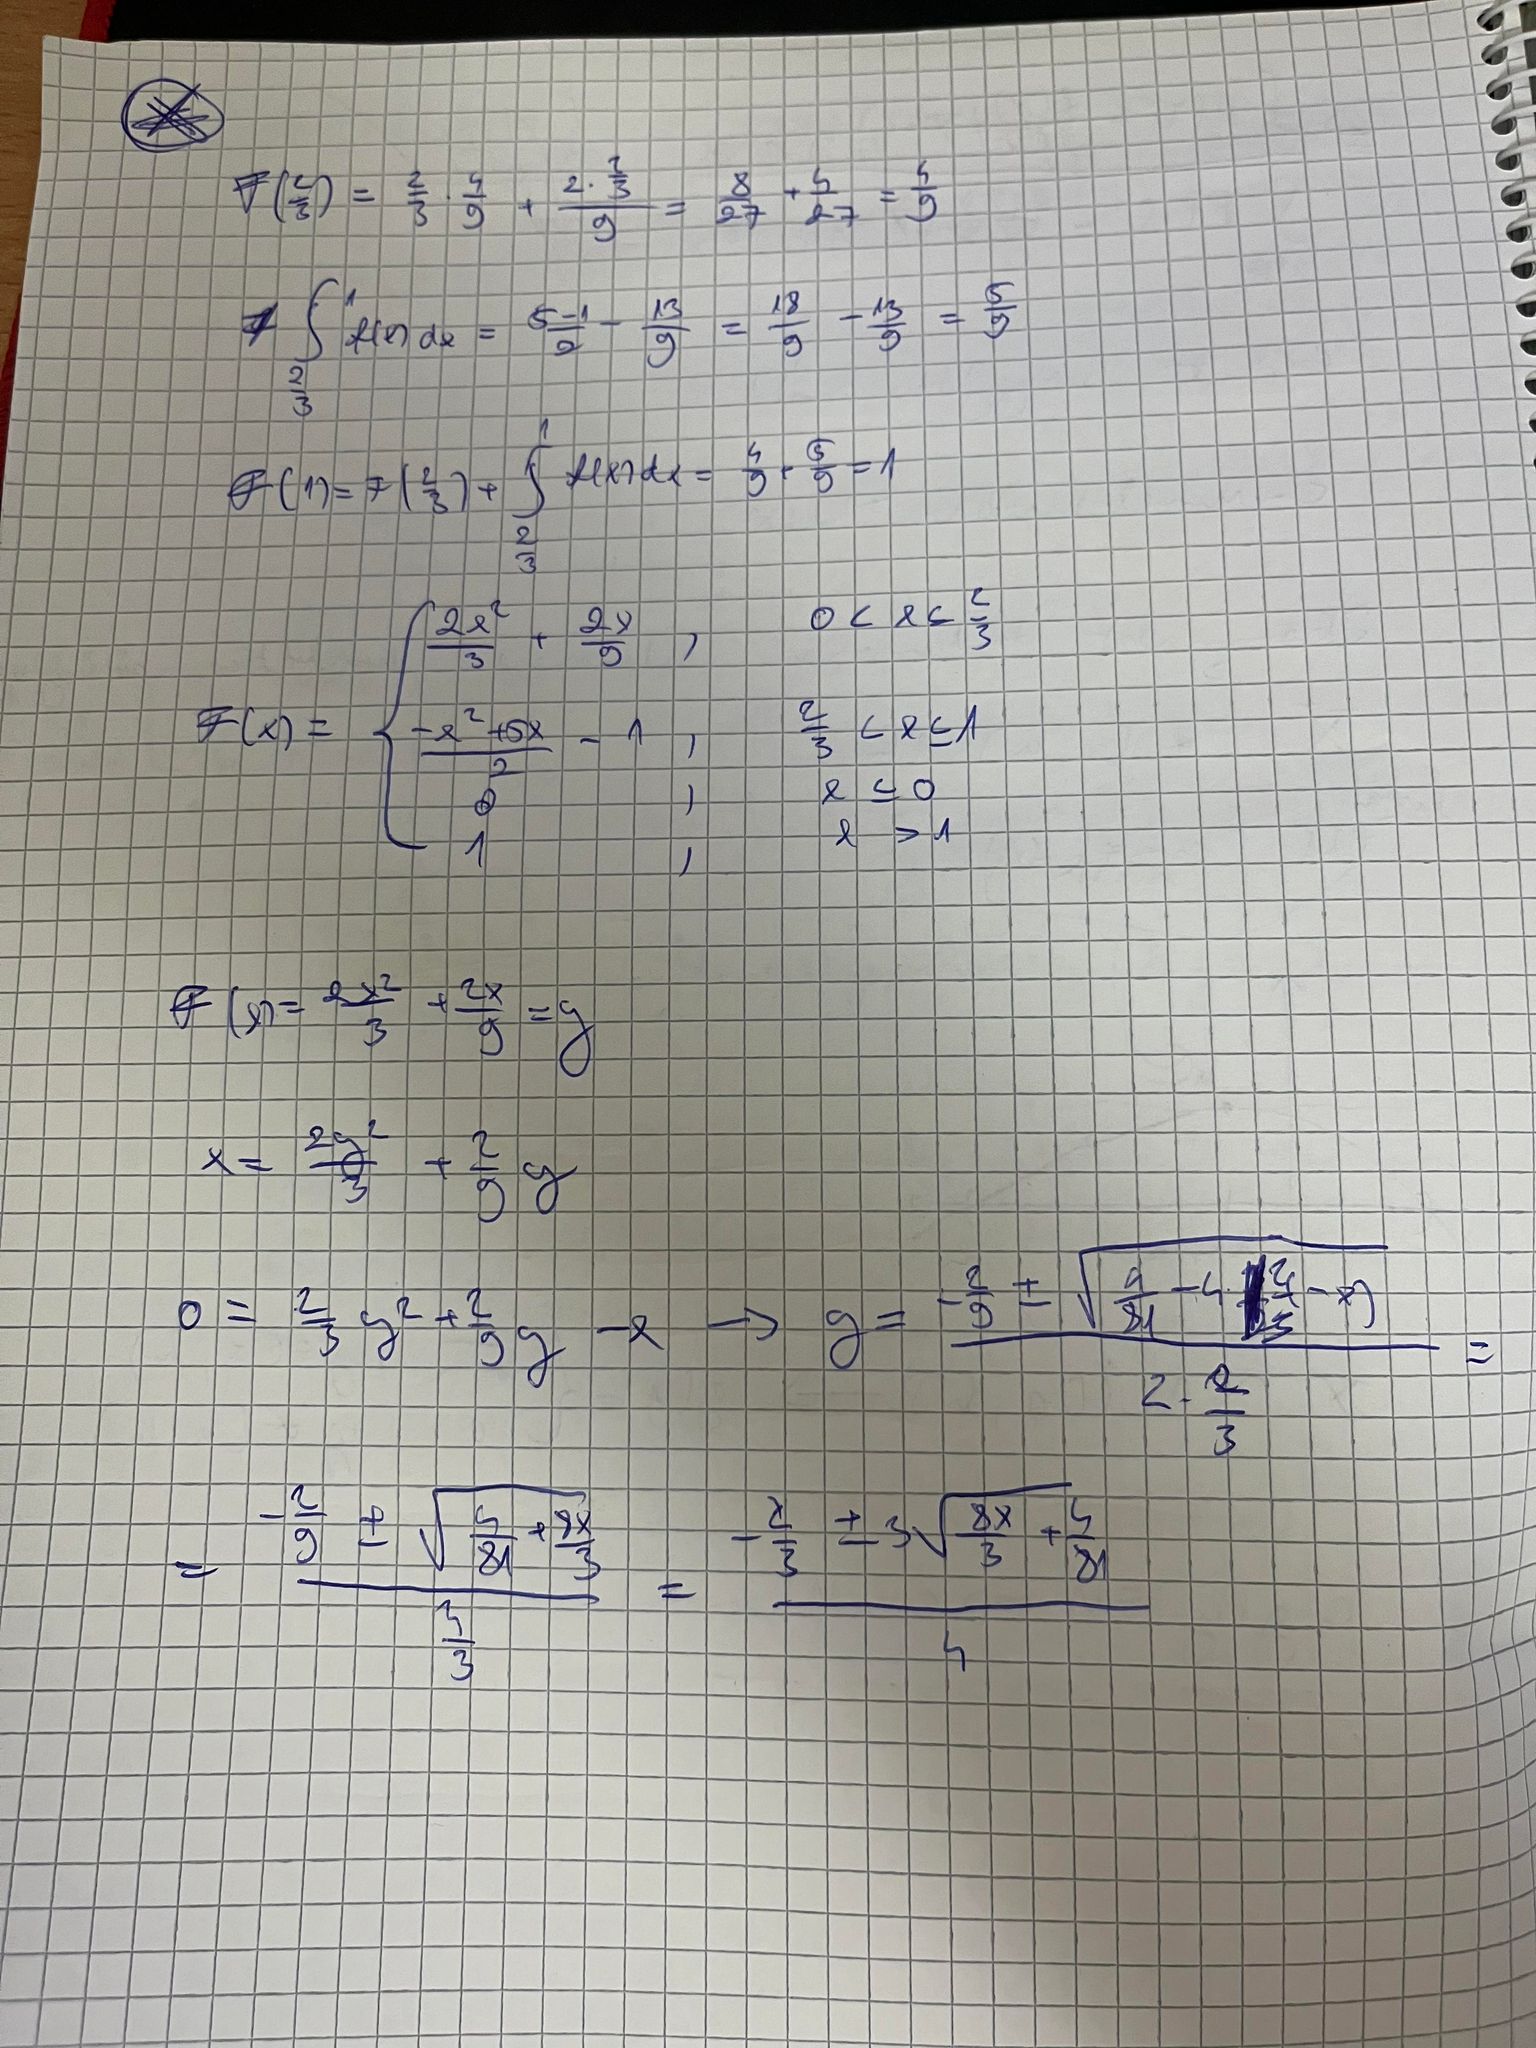 F(2/3) = 2/3 · 4/9 + (2 · 2/3)/9 = 8/27 + 4/27 = 4/9
∫_{2/3}^{1} f(x) dx = (5-1)/2 - 13/9 = 18/9 - 13/9 = 5/9
F(1) = F(2/3) + ∫_{2/3}^{1} f(x) dx = 4/9 + 5/9 = 1
F(x) = { 2x²/3 + 2x/9 , 0 < x ≤ 2/3
(-x² + 5x)/2 - 1 , 2/3 < x ≤ 1
0 , x ≤ 0
1 , x > 1
F(x) = 2x²/3 + 2x/9 = y
x = 2y²/3 + 2/9 y
0 = 2/3 y² + 2/9 y - x → y = (-2/9 ± √(4/81 - 4 · 2/3 · -x))/(2 · 2/3) =
= (-2/9 ± √(4/81 + 8x/3))/(4/3) = (-2/3 ± 3√(8x/3 + 4/81))/4